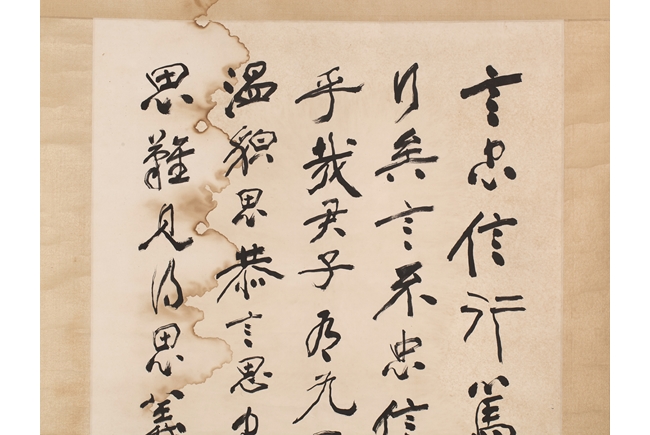 言忠信行篤
行矣言不忠信
乎哉君子有九
溫貌思恭言思忠
思難見得思義